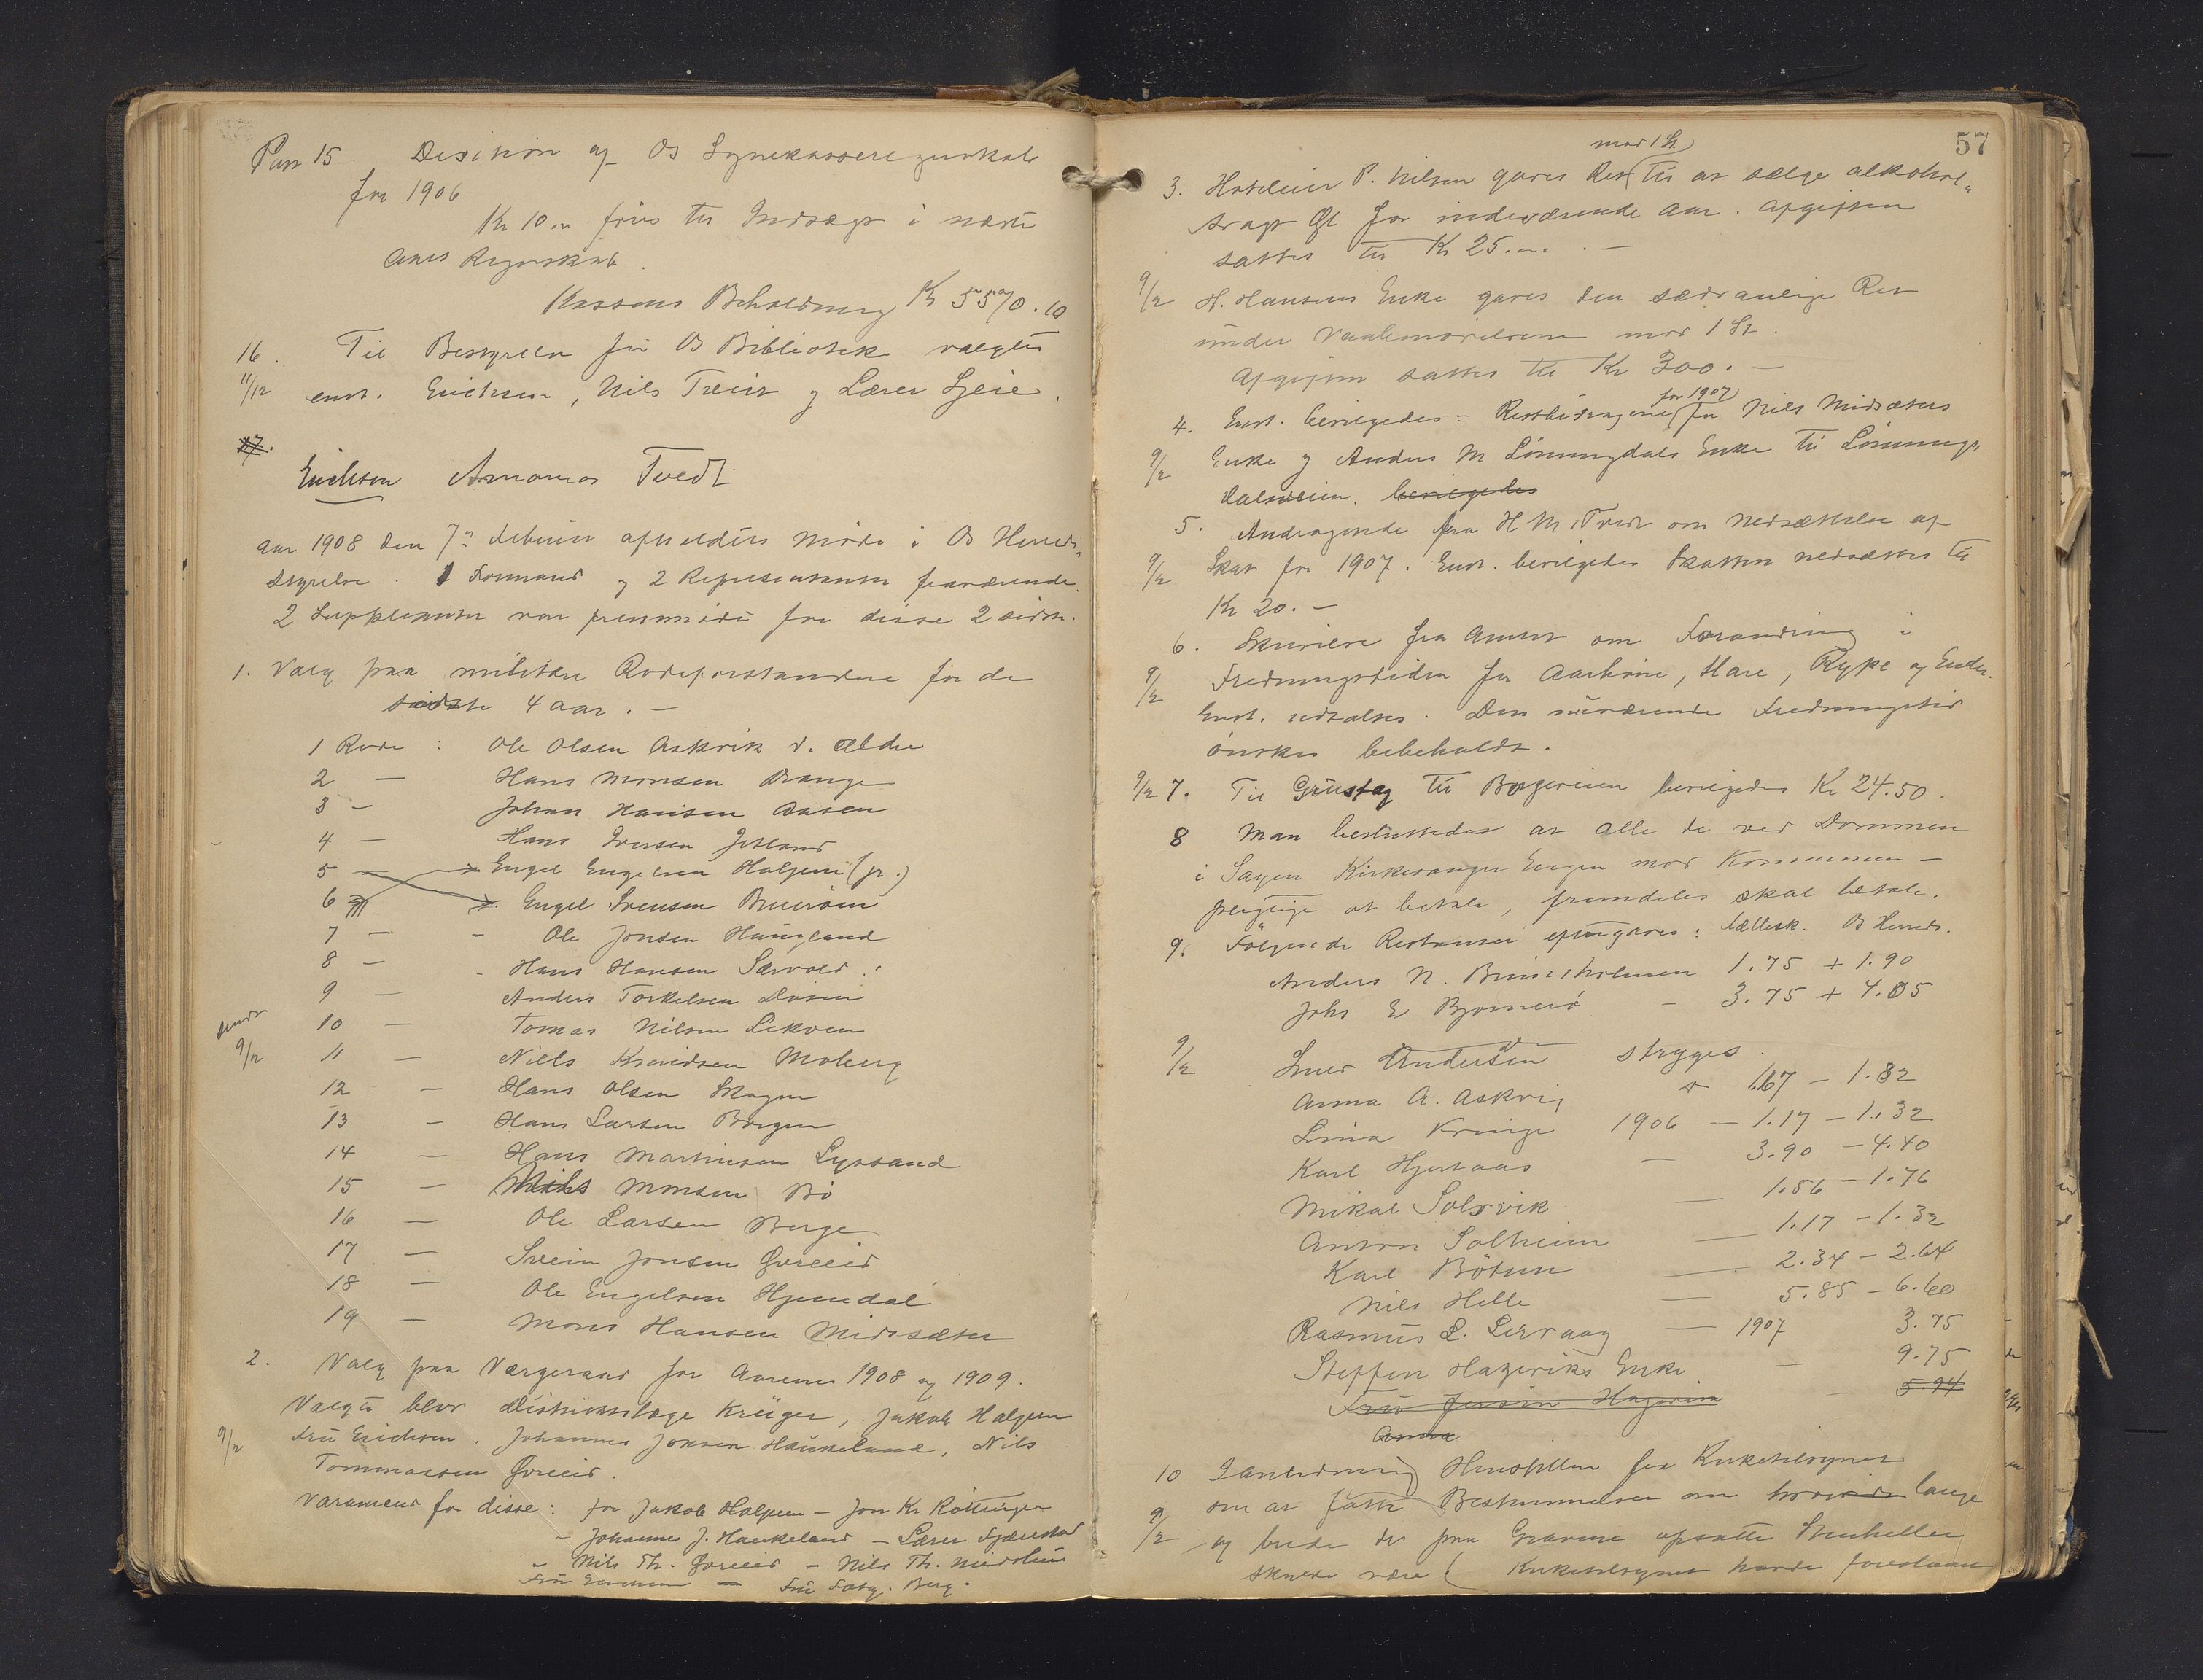 Pas 15. Desision af Os Synekasseregnskab
for 1906
Kr 10.00 føres til Indtægt i næste
Aars Regnskab.
Kassens Beholdning Kr 5570.10
16. Til Bestyrelse for Os Bibliotek valgtes
11/12 enst. Erichsen, Nils Tveit og Lærer Gjeie.
17.
Erichsen Amanias Tvedt
Aar 1908 den 7de Februar afholdtes Møde i Os Herreds-
styrelse. 1 Formand og 2 Repræsentanter fraværende.
2 Supleanter var fremmødt for disse 2 sidste.
1. Valg paa militære Rodeforstandere for de
sidste 4 aar. —
1 Rode : Ole Olsen Askvik d. ældre
2 — Hans Monsen Drange
3 — Johan Hansen Aasen
4 — Hans Iversen Jetland
5 — Engel Engelsen Haljem (jr.)
6 Engel Svensen Bruerøen
7 — - Ole Jonsen Haugland
8 — - Hans Hansen Særvold
9 — Anders Torkelsen Døsen
10 — Tomas Nilsen Lekven
sendt 9/2
11 — Niels Knudsen Moberg
12 — Hans Olsen Skogen
13 — Hans Larsen Borgen
14 — Hans Martinsen Lyssand
15 — Monsen Bø
16 — Ole Larsen Berge
17 — Svein Jonsen Øvreeid
18 — Ole Engelsen Hjemdal
19 — Mons Hansen Midtsæter
2. Valg paa Værgeraad for Aarene 1908 og 1909.
Valgte blev Distriktslæge Krüger, Jakob Haljem
9/2 Fru Erichsen. Johannes Jonsen Haukeland, Nils
Tommassen Øvreeid.
Varamænd for disse: for Jakob Haljem — Jon Kr Røttingen
- Johannes J. Haukeland — Lærer Fjærestad
- Nils Th. Øvreeid — Nils Th. Midthus
Fru Erichsen — Fru Berg.
57
mod 1 St
3. Hoteleier P. Nilsen gaves Ret til at sælge alkohol-
svagt Øl for indeværende Aar. Afgiften
sattes til Kr 25.00. —
9/2 H. Hansens Enke gaves den sædvanlige Ret
under Vaabenøvelserne mod 1 St.
Afgiften sattes til Kr 300. —
for 1907
4. Enst. bevilgedes Restbidragene for Nils Midsæters
9/2 Enke og Anders M Lønningdals Enke til Lønnings-
dalsveien. bevilgedes
5. Andragende fra H M Tvedt om Nedsættelse af
9/2 Skat for 1907. Enst. bevilgedes Skatten nedsættes til
Kr 20. —
6. Skrivelse fra Amtet om Forandring i
9/2 Fredningstiden for Aarhøne, Hare, Rype og Ender.
Enst. udtaltes. Den nuværende Fredningstid
ønskes bebeholdt.
9/2 7. Til Grustag til Borgeveien bevilgedes Kr 24.50.
8 Man besluttedes at alle de ved Dommen
i Sagen Kirkevanger Eegen mod Kommunen —
pligtige at betale, fremdeles skal betale.
9. Følgende Restanser eftergaves: Fællesk. Os Herreds.
Anders N. Bruseholmen 1.75 + 1.90
Johs E Bjørnerø — 3.75 + 4.05
9/2 Andersen stryges.
Anna A. Askvig 1.67 — 1.82
Lina Kringe 1906 — 1.17 — 1.32
Karl Hjertaas — 3.90 — 4.40
Mikal Solsvik — 1.56 — 1.76
Anton Solheim — 1.17 — 1.32
Karl Bötun — 2.34 — 2.64
Nils Helle — 5.85 — 6.60
Rasmus L. Lervaag — 1907 3.75
Steffen Hageviks Enke — 9.75
Fru Hagevik — 5.94
Anna
10 I anledning Henstillen fra Kirketilsynet
om at fatte Bestemmelse om lange
9/2 og brede de paa Gravene opsatte Stenheller
skulde være ( Kirketilsynet havde foreslaaet